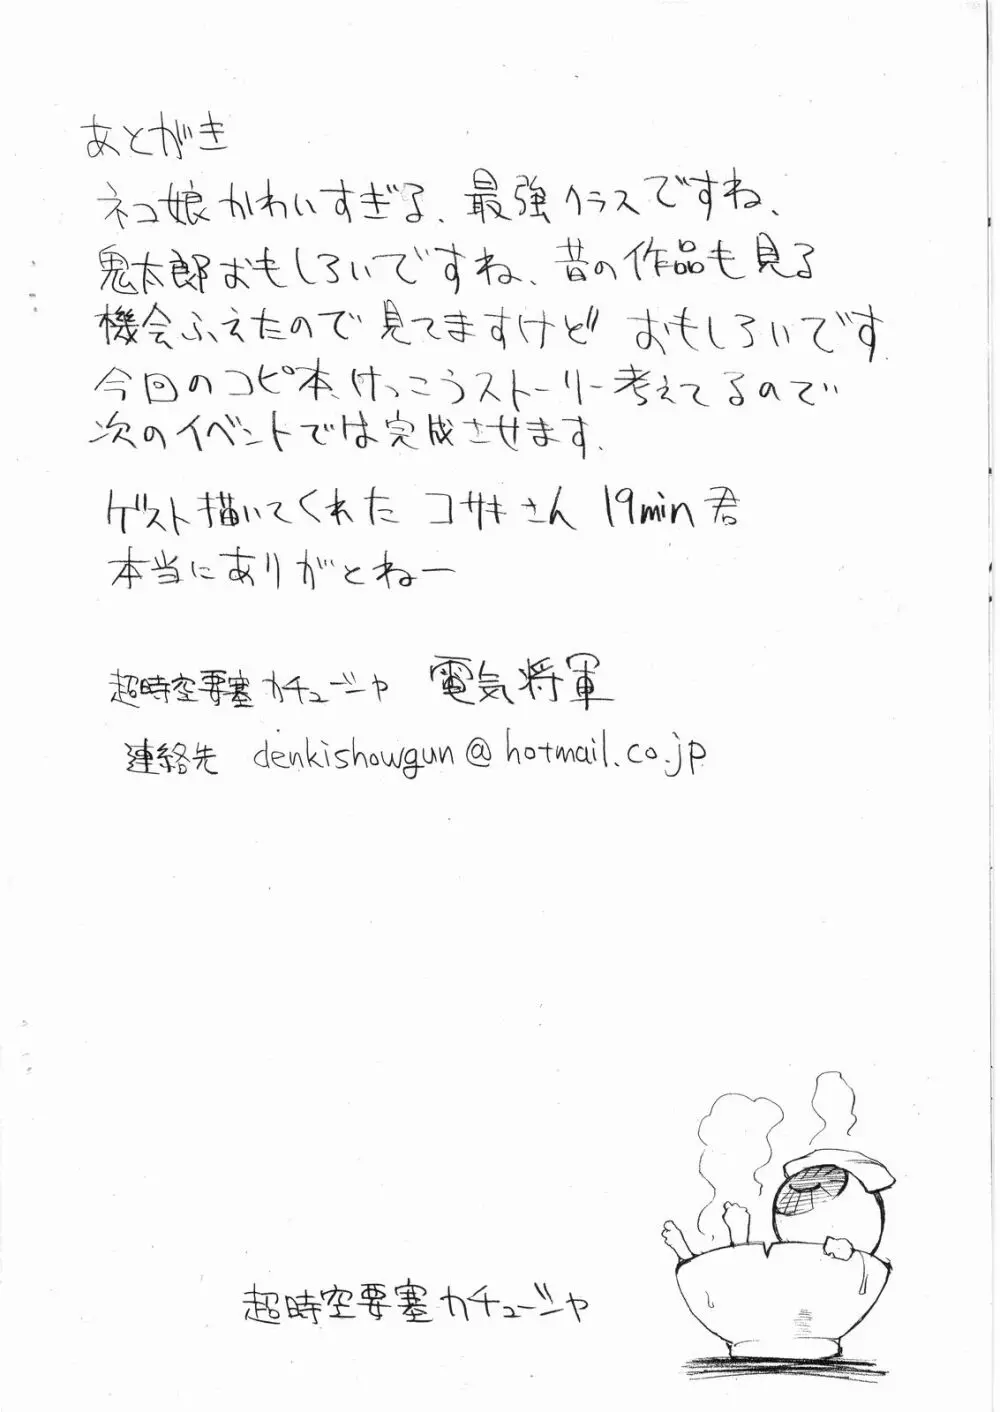 あとがき
ネコ娘かわいすぎる、最強クラスですね、
鬼太郎おもしろいですね、昔の作品も見る
機会ふえたので見てますけど おもしろいです
今回のコピ本、けっこうストーリー考えてるので
次のイベントでは完成させます、
ゲスト描いてくれた コサキさん 19min君
本当にありがとねー
超時空要塞カチューシャ 電気将軍
連絡先 denkishowgun@hotmail.co.jp
超時空要塞カチューシャ